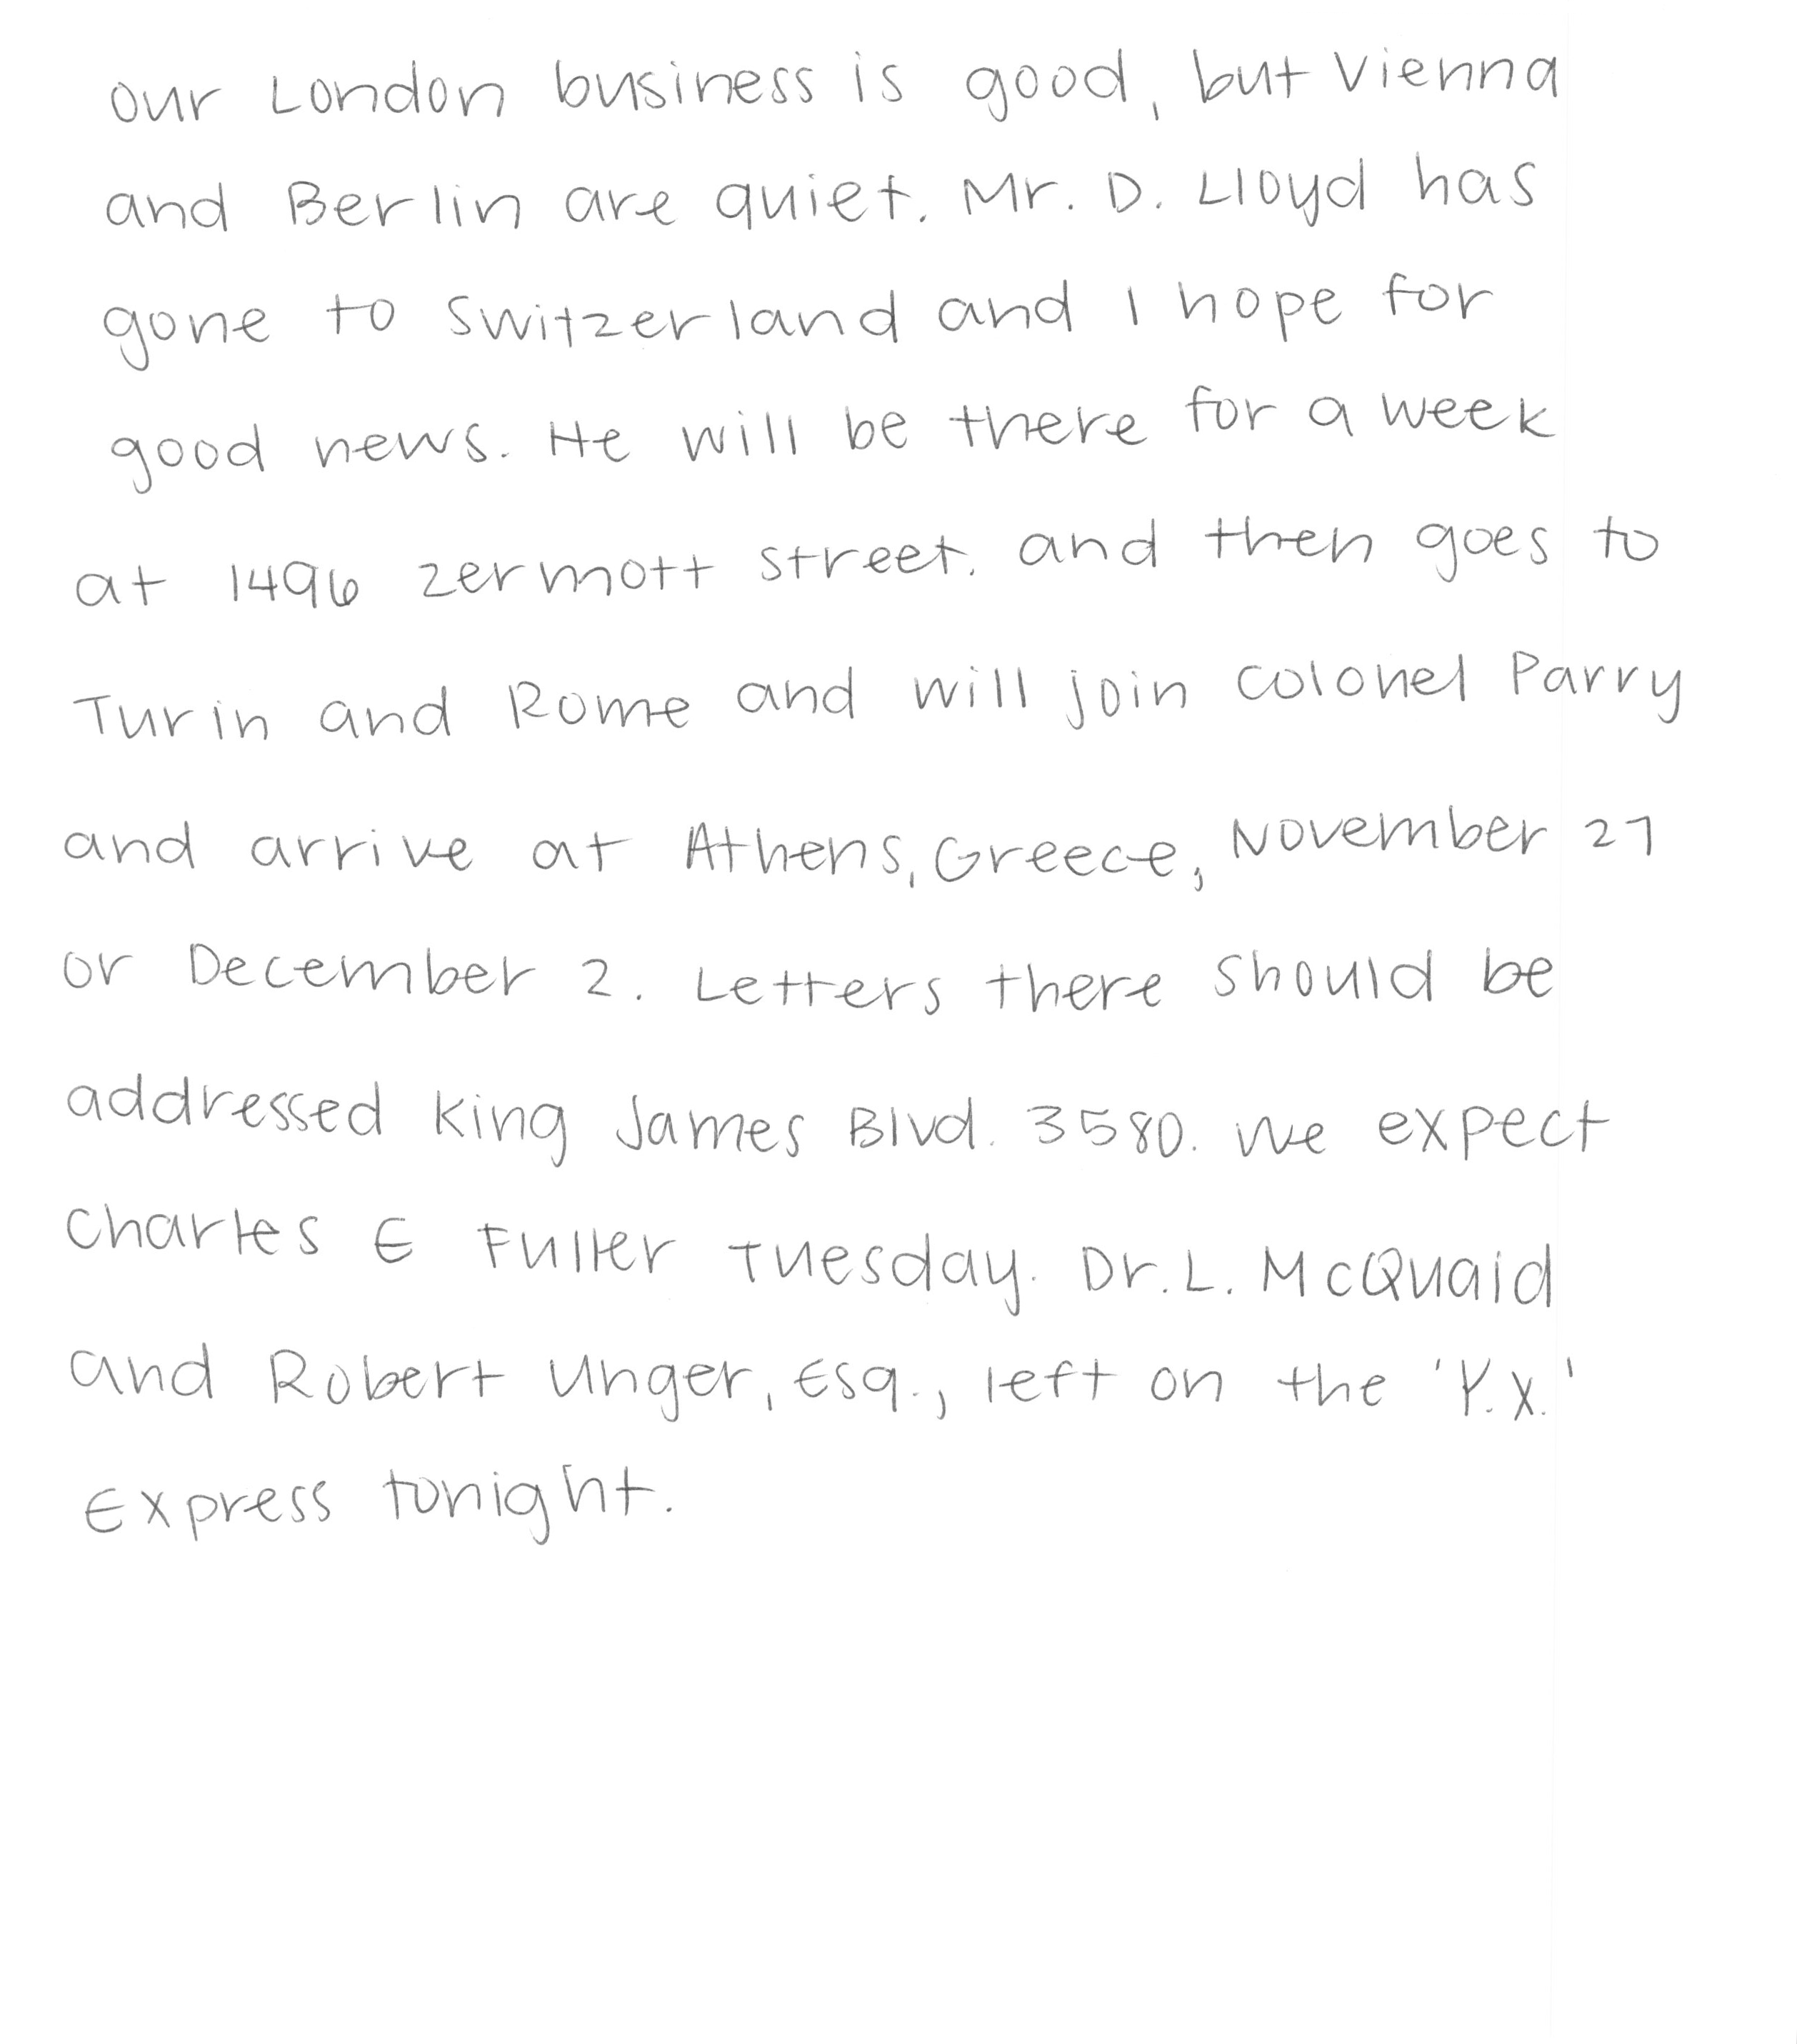 our London business is good, but Vienna
and Berlin are quiet. Mr. D. Lloyd has
gone to Switzerland and I hope for
good news. He will be there for a week
at 1496 Zermott street. and then goes to
Turin and Rome and will join Colonel Parry
and arrive at Athens, Greece, November 27
or December 2. Letters there should be
addressed King James Blvd. 3580. We expect
Charles E Fuller Tuesday. Dr. L. McQuaid
and Robert Unger, Esq., left on the 'Y.X.'
Express tonight.